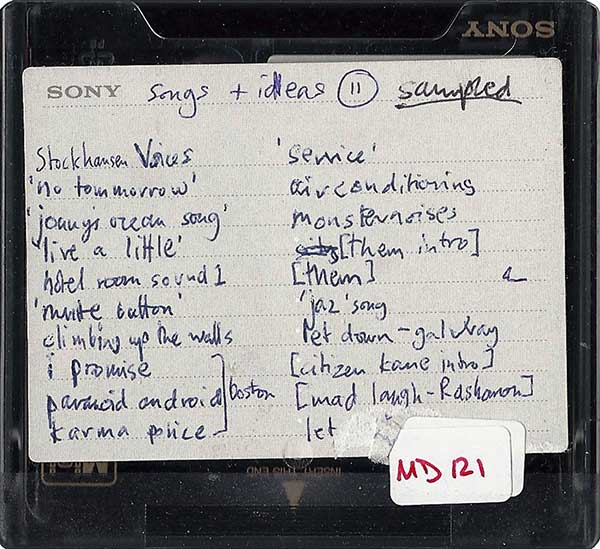 SONY
SONY songs + ideas 11 sampled
Stockhausen Voices
'no tommorrow'
'jonny's ocean song'
'live a little'
hotel room sound 1
'mute button'
climbing up the walls
i promise
paranoid android
karma plice
boston
'service'
airconditioning
monsternoises
[them intro]
[them]
'jaz' song
let down - galway
[citizen kane intro]
[mad laugh - Rashamon]
let
INSERT THIS END
MD 121